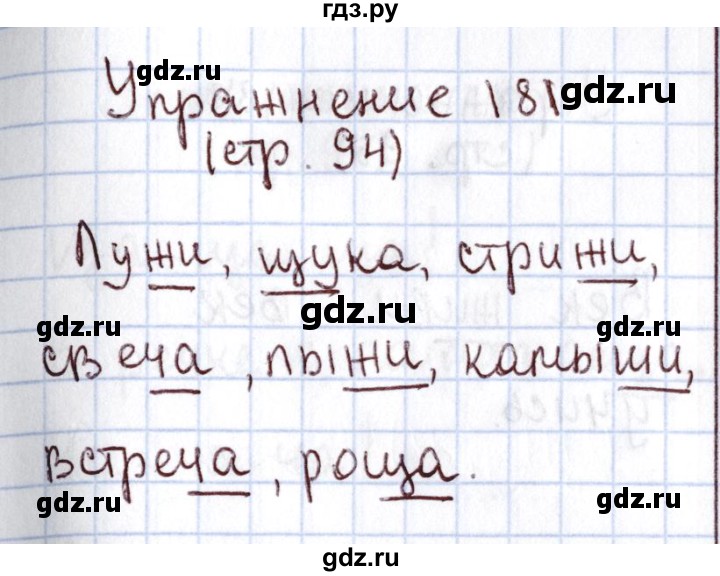 гдз.ру
gdz.ru
Упражнение 181
gdz.ru
(стр. 94)
Лужи, щука, стрижи,
gdz.ru
gdz.ru
gdz.ru
свеча, лыжи, камыши,
встреча, роща.
gdz.ru
gdz.ru
gdz.ru